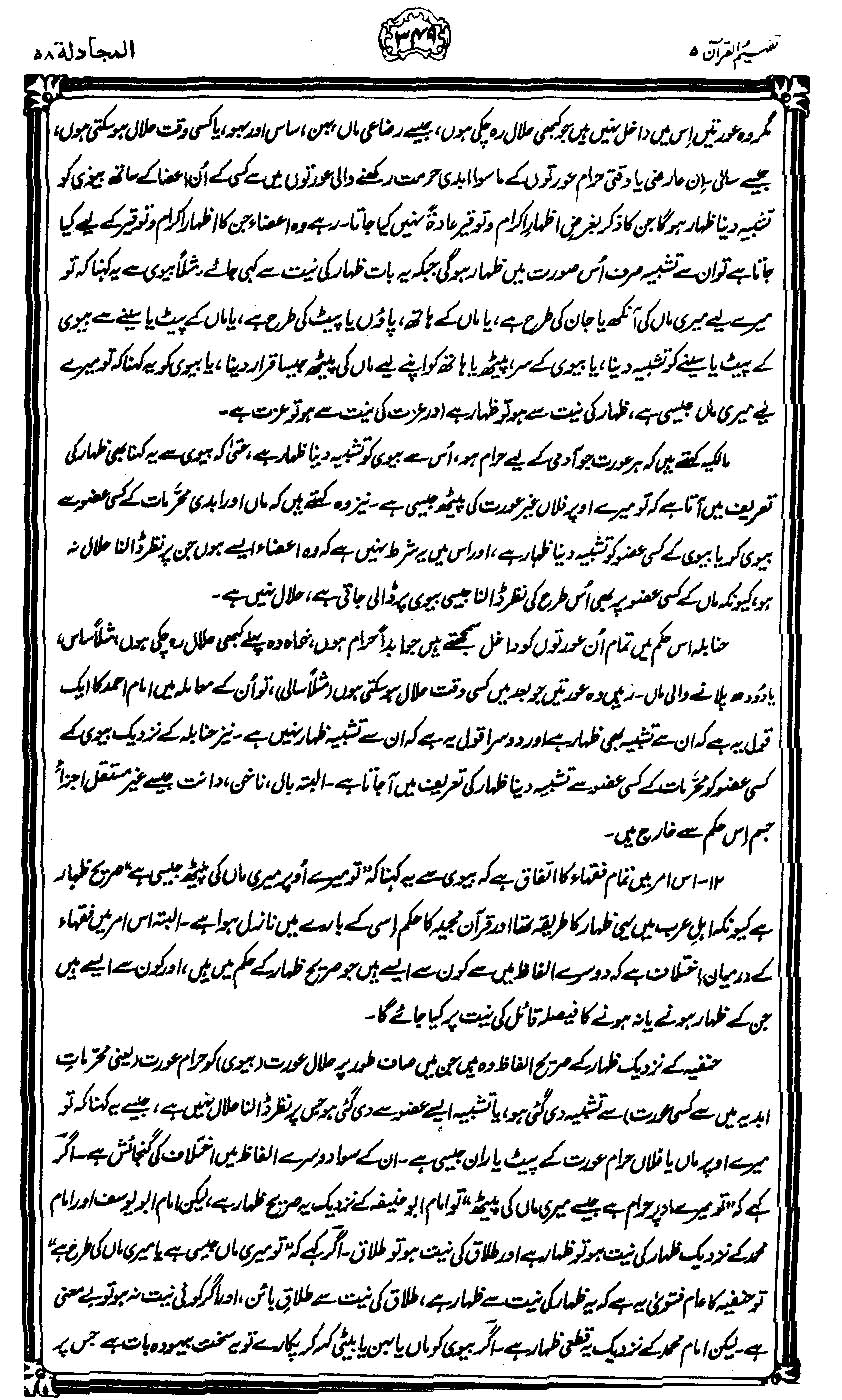 تفہیم القرآن ۵
۳۴۹
المجادلۃ ۵۸
مگر وہ عورتیں اِس میں داخل نہیں ہیں جو کبھی حلال رہ چکی ہوں، جیسے رضاعی ماں، بہن، ساس اور بہو، یا کسی وقت حلال ہو سکتی ہوں،
جیسے سالی۔ اِن عارضی یا وقتی حرام عورتوں کے ماسوا ابدی حرمت رکھنے والی عورتوں میں سے کسی کے اُن اعضا کے ساتھ بیوی کو
تشبیہ دینا ظہار ہوگا جن کا ذکر بغرضِ اظہارِ اکرام و توقیر عادۃً نہیں کیا جاتا۔ رہے وہ اعضاء جن کا اظہارِ اکرام و توقیر کے لیے کیا
جاتا ہے تو ان سے تشبیہ صرف اُس صورت میں ظہار ہوگی جبکہ یہ بات ظہار کی نیت سے کہی جائے۔ مثلاً بیوی سے یہ کہنا کہ تو
میرے لیے میری ماں کی آنکھ یا جان کی طرح ہے، یا ماں کے ہاتھ، پاؤں یا پیٹ کی طرح ہے، یا ماں کے پیٹ یا سینے سے بیوی
کے پیٹ یا سینے کو تشبیہ دینا، یا بیوی کے سر، پیٹھ یا ہاتھ کو اپنے لیے ماں کی پیٹھ جیسا قرار دینا، یا بیوی کو یہ کہنا کہ تو میرے
لیے میری ماں جیسی ہے، ظہار کی نیت سے ہو تو ظہار ہے اور عزت کی نیت سے ہو تو عزت ہے۔
مالکیہ کہتے ہیں کہ ہر عورت جو آدمی کے لیے حرام ہو، اُس سے بیوی کو تشبیہ دینا ظہار ہے، حتیٰ کہ بیوی سے یہ کہنا بھی ظہار کی
تعریف میں آتا ہے کہ تو میرے اوپر فلاں غیر عورت کی پیٹھ جیسی ہے۔ نیز وہ کہتے ہیں کہ ماں اور ابدی محرَّمات کے کسی عضو سے
بیوی کو یا بیوی کے کسی عضو کو تشبیہ دینا ظہار ہے، اور اس میں یہ شرط نہیں ہے کہ وہ اعضاء ایسے ہوں جن پر نظر ڈالنا حلال نہ
ہو، کیونکہ ماں کے کسی عضو پر بھی اُس طرح کی نظر ڈالنا جیسی بیوی پر ڈالی جاتی ہے، حلال نہیں ہے۔
حنابلہ اس حکم میں تمام اُن عورتوں کو داخل سمجھتے ہیں جو ابداً حرام ہوں، خواہ وہ پہلے کبھی حلال رہ چکی ہوں، مثلاً ساس،
یا دُودھ پلانے والی ماں۔ رہیں وہ عورتیں جو بعد میں کسی وقت حلال ہو سکتی ہوں (مثلاً سالی)، تو اُن کے معاملہ میں امام احمد کا ایک
قول یہ ہے کہ ان سے تشبیہ بھی ظہار ہے اور دوسرا قول یہ ہے کہ ان سے تشبیہ ظہار نہیں ہے۔ نیز حنابلہ کے نزدیک بیوی کے
کسی عضو کو محرَّمات کے کسی عضو سے تشبیہ دینا ظہار کی تعریف میں آ جاتا ہے۔ البتہ بال، ناخن، دانت جیسے غیر مستقل اجزائے
جسم اِس حکم سے خارج ہیں۔
۱۲۔ اس امر میں تمام فقہاء کا اتفاق ہے کہ بیوی سے یہ کہنا کہ ”تو میرے اُوپر میری ماں کی پیٹھ جیسی ہے“ صریح ظہار
ہے کیونکہ اہلِ عرب میں یہی ظہار کا طریقہ تھا اور قرآن مجید کا حکم اِسی کے بارے میں نازل ہوا ہے۔ البتہ اس امر میں فقہاء
کے درمیان اختلاف ہے کہ دوسرے الفاظ میں سے کون سے ایسے ہیں جو صریح ظہار کے حکم میں ہیں، اور کون سے ایسے ہیں
جن کے ظہار ہونے یا نہ ہونے کا فیصلہ قائل کی نیت پر کیا جائے گا۔
حنفیہ کے نزدیک ظہار کے صریح الفاظ وہ ہیں جن میں صاف طور پر حلال عورت (بیوی) کو حرام عورت (یعنی محرّماتِ
ابدیہ میں سے کسی عورت) سے تشبیہ دی گئی ہو، یا تشبیہ ایسے عضو سے دی گئی ہو جس پر نظر ڈالنا حلال نہیں ہے، جیسے یہ کہنا کہ تو
میرے اوپر ماں یا فلاں حرام عورت کے پیٹ یا ران جیسی ہے۔ ان کے سوا دوسرے الفاظ میں اختلاف کی گنجائش ہے۔ اگر
کہے کہ ”تو میرے اوپر حرام ہے جیسے میری ماں کی پیٹھ“ تو امام ابو حنیفہ کے نزدیک یہ صریح ظہار ہے، لیکن امام ابو یوسف اور امام
محمد کے نزدیک ظہار کی نیت ہو تو ظہار ہے اور طلاق کی نیت ہو تو طلاق۔ اگر کہے کہ ”تو میری ماں جیسی ہے یا میری ماں کی طرح ہے“
تو حنفیہ کا عام فتویٰ یہ ہے کہ یہ ظہار کی نیت سے ظہار ہے، طلاق کی نیت سے طلاقِ بائن، اور اگر کوئی نیت نہ ہو تو بے معنی
ہے۔ لیکن امام محمد کے نزدیک یہ قطعی ظہار ہے۔ اگر بیوی کو ماں یا بہن یا بیٹی کہہ کر پکارے تو یہ سخت بیہودہ بات ہے جس پر